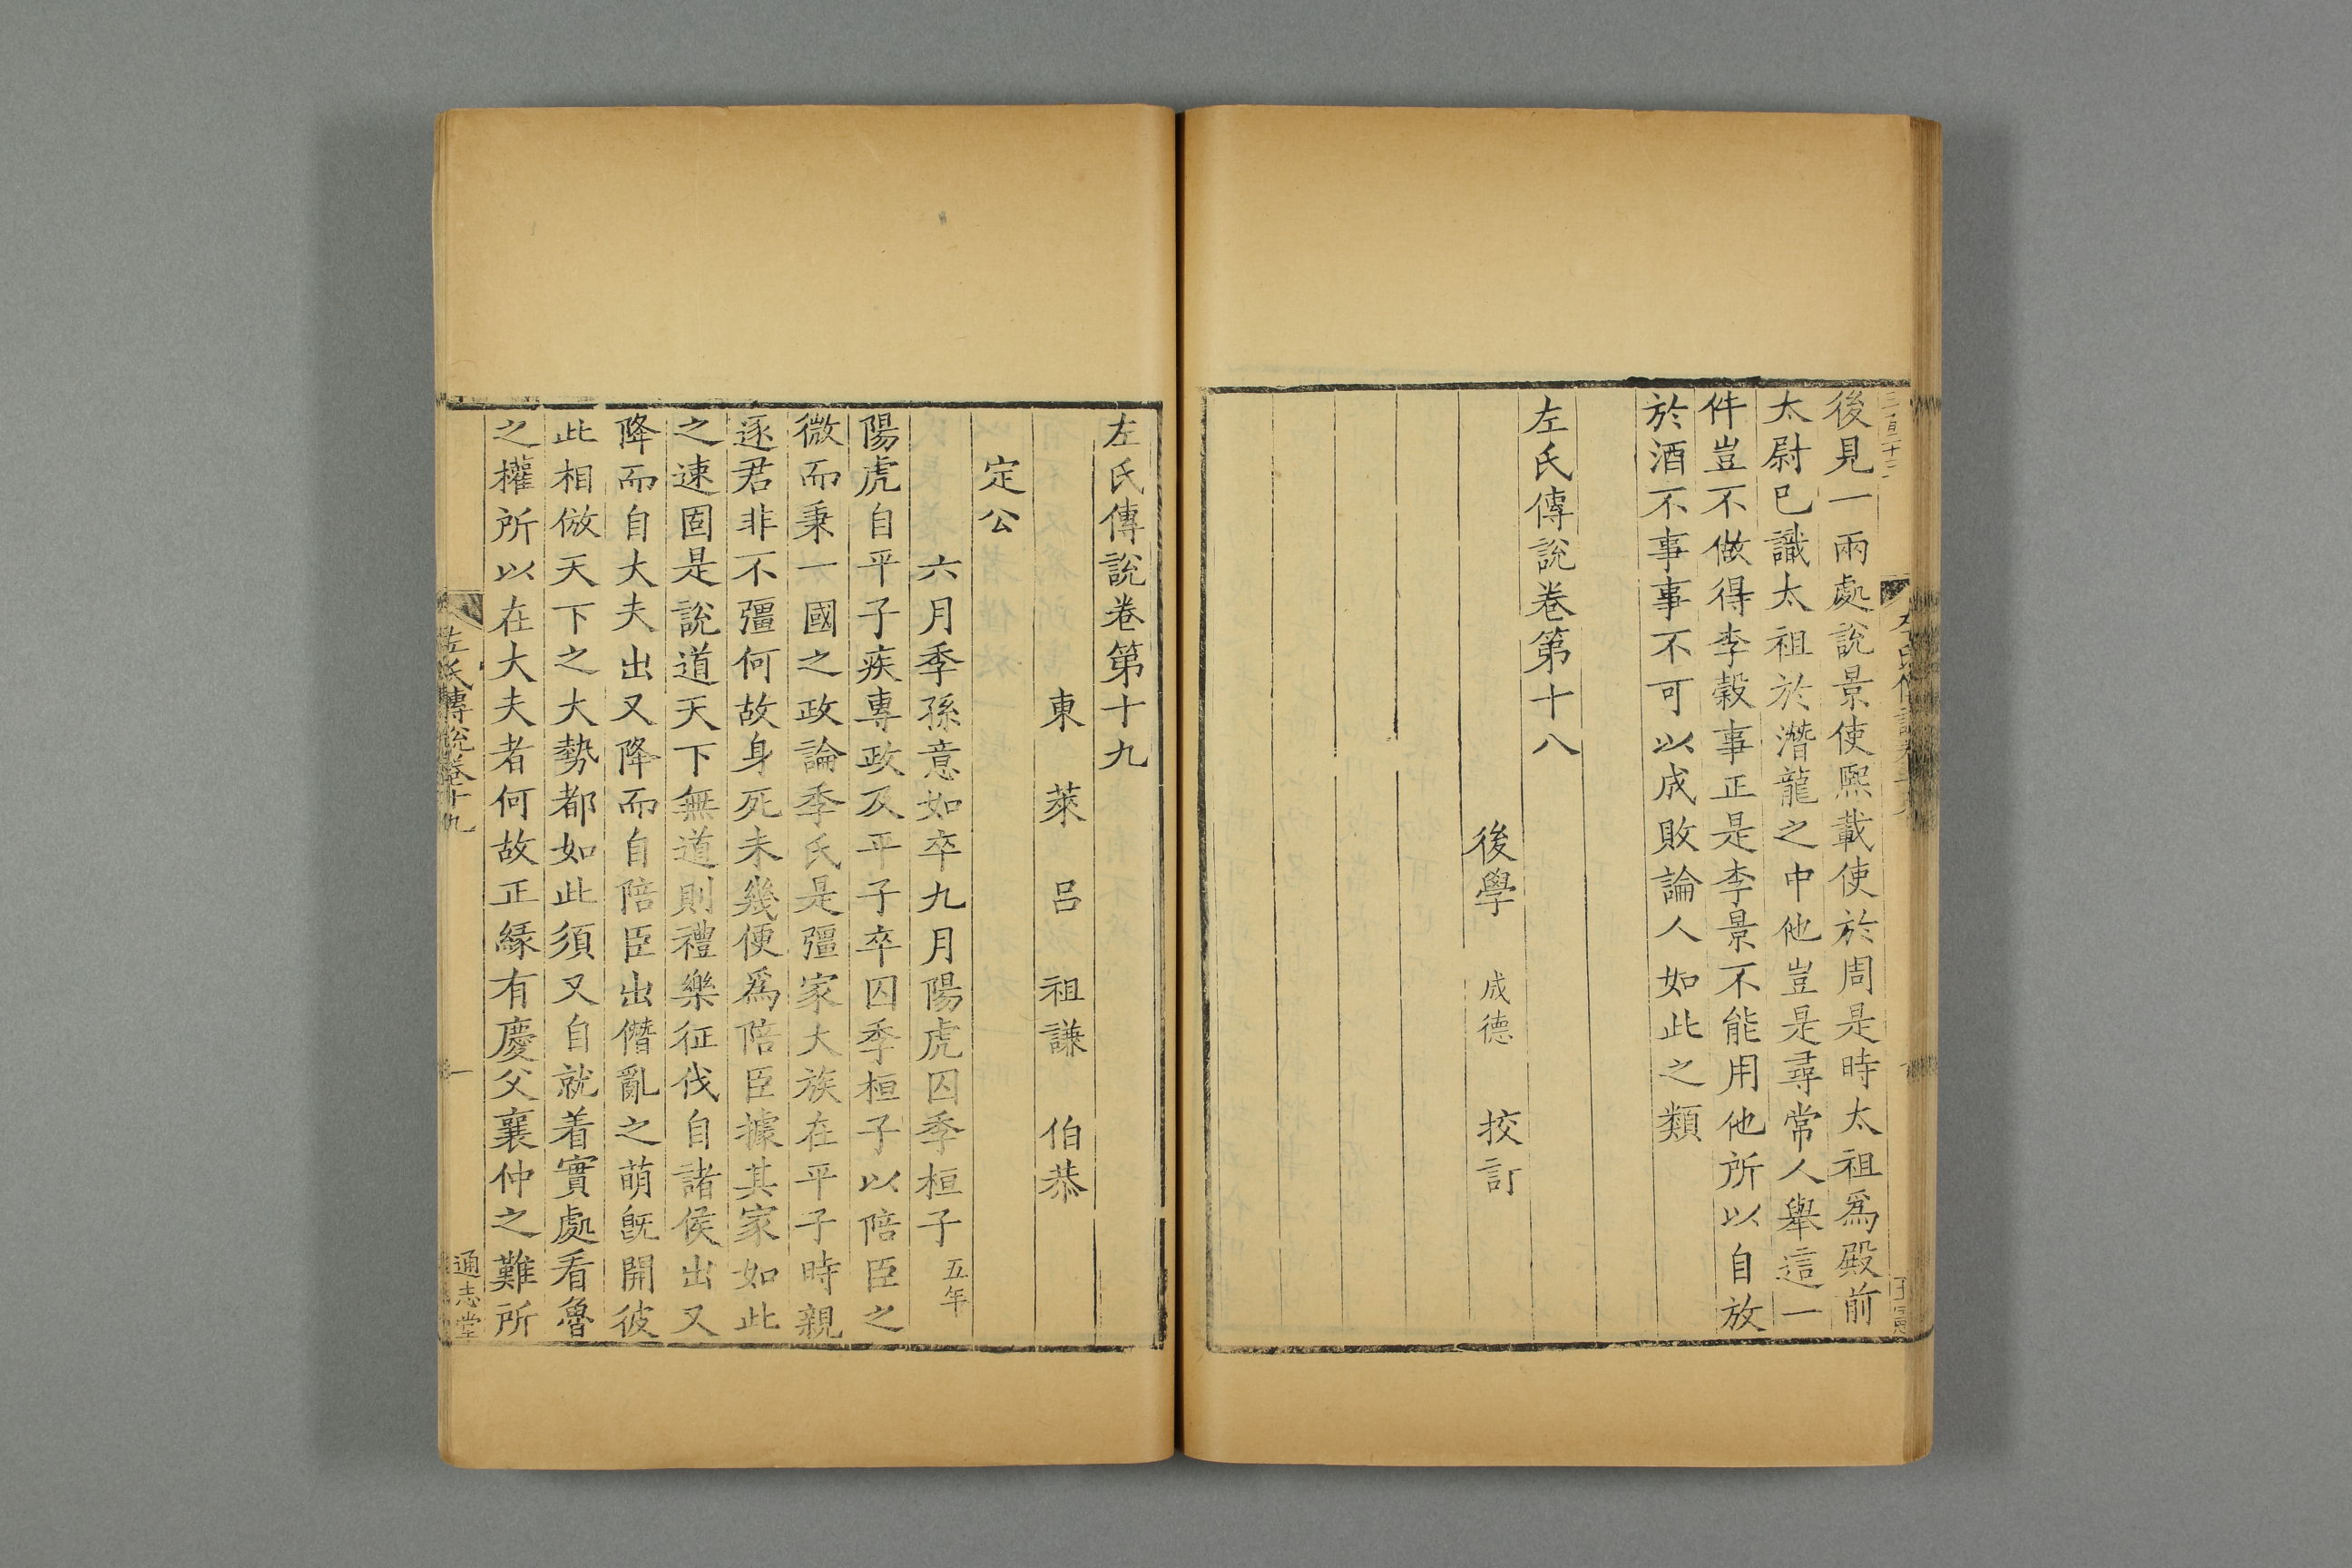 後見一兩處說景使熙載使於周是時太祖爲殿前
太尉已識太祖於潛龍之中他豈是尋常人舉這一
件豈不做得李穀事正是李景不能用他所以自放
於酒不事事不可以成敗論人如此之類
左氏傳說卷第十八
後學 成德 挍訂
左氏傳說卷第十九
東萊呂祖謙伯恭
定公
六月季孫意如卒九月陽虎囚季桓子五年
陽虎自平子疾專政及平子卒囚季桓子以陪臣之
微而秉一國之政論季氏是彊家大族在平子時親
逐君非不彊何故身死未幾便爲陪臣據其家如此
之速固是說道天下無道則禮樂征伐自諸侯出又
降而自大夫出又降而自陪臣出僭亂之萌旣開彼
此相倣天下之大勢都如此須又自就着實處看魯
之權所以在大夫者何故正緣有慶父襄仲之難所
左氏傳說卷十九
一
通志堂